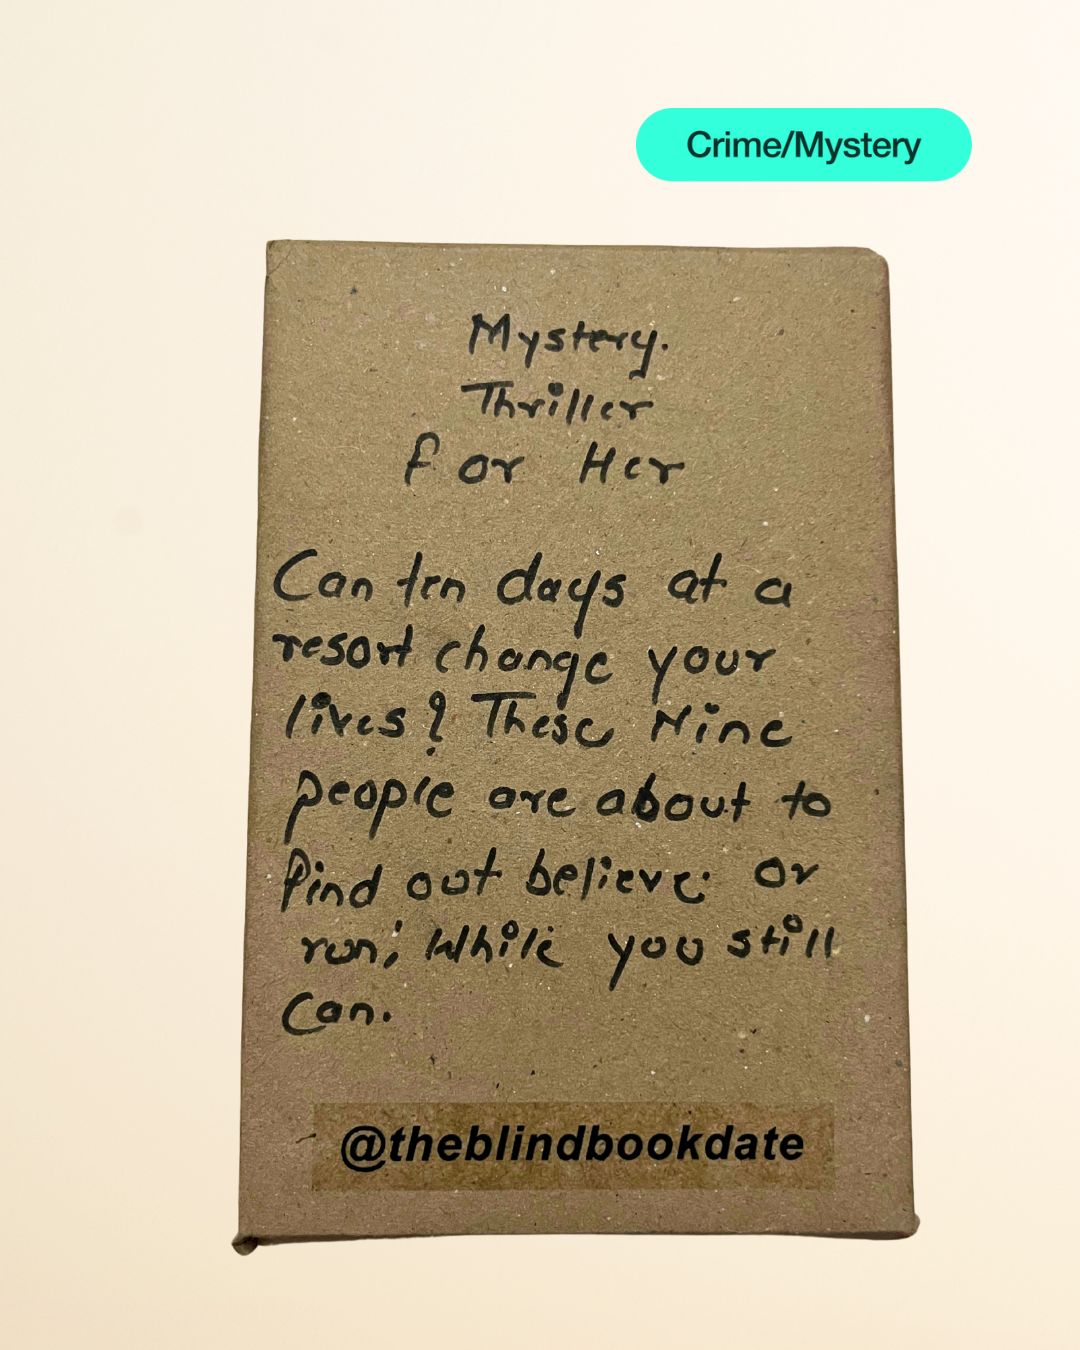 Crime/Mystery
Mystery.
Thriller
for Her
Can ten days at a
resort change your
lives? These Nine
people are about to
find out believe. or
run; While you still
Can.
@theblindbookdate